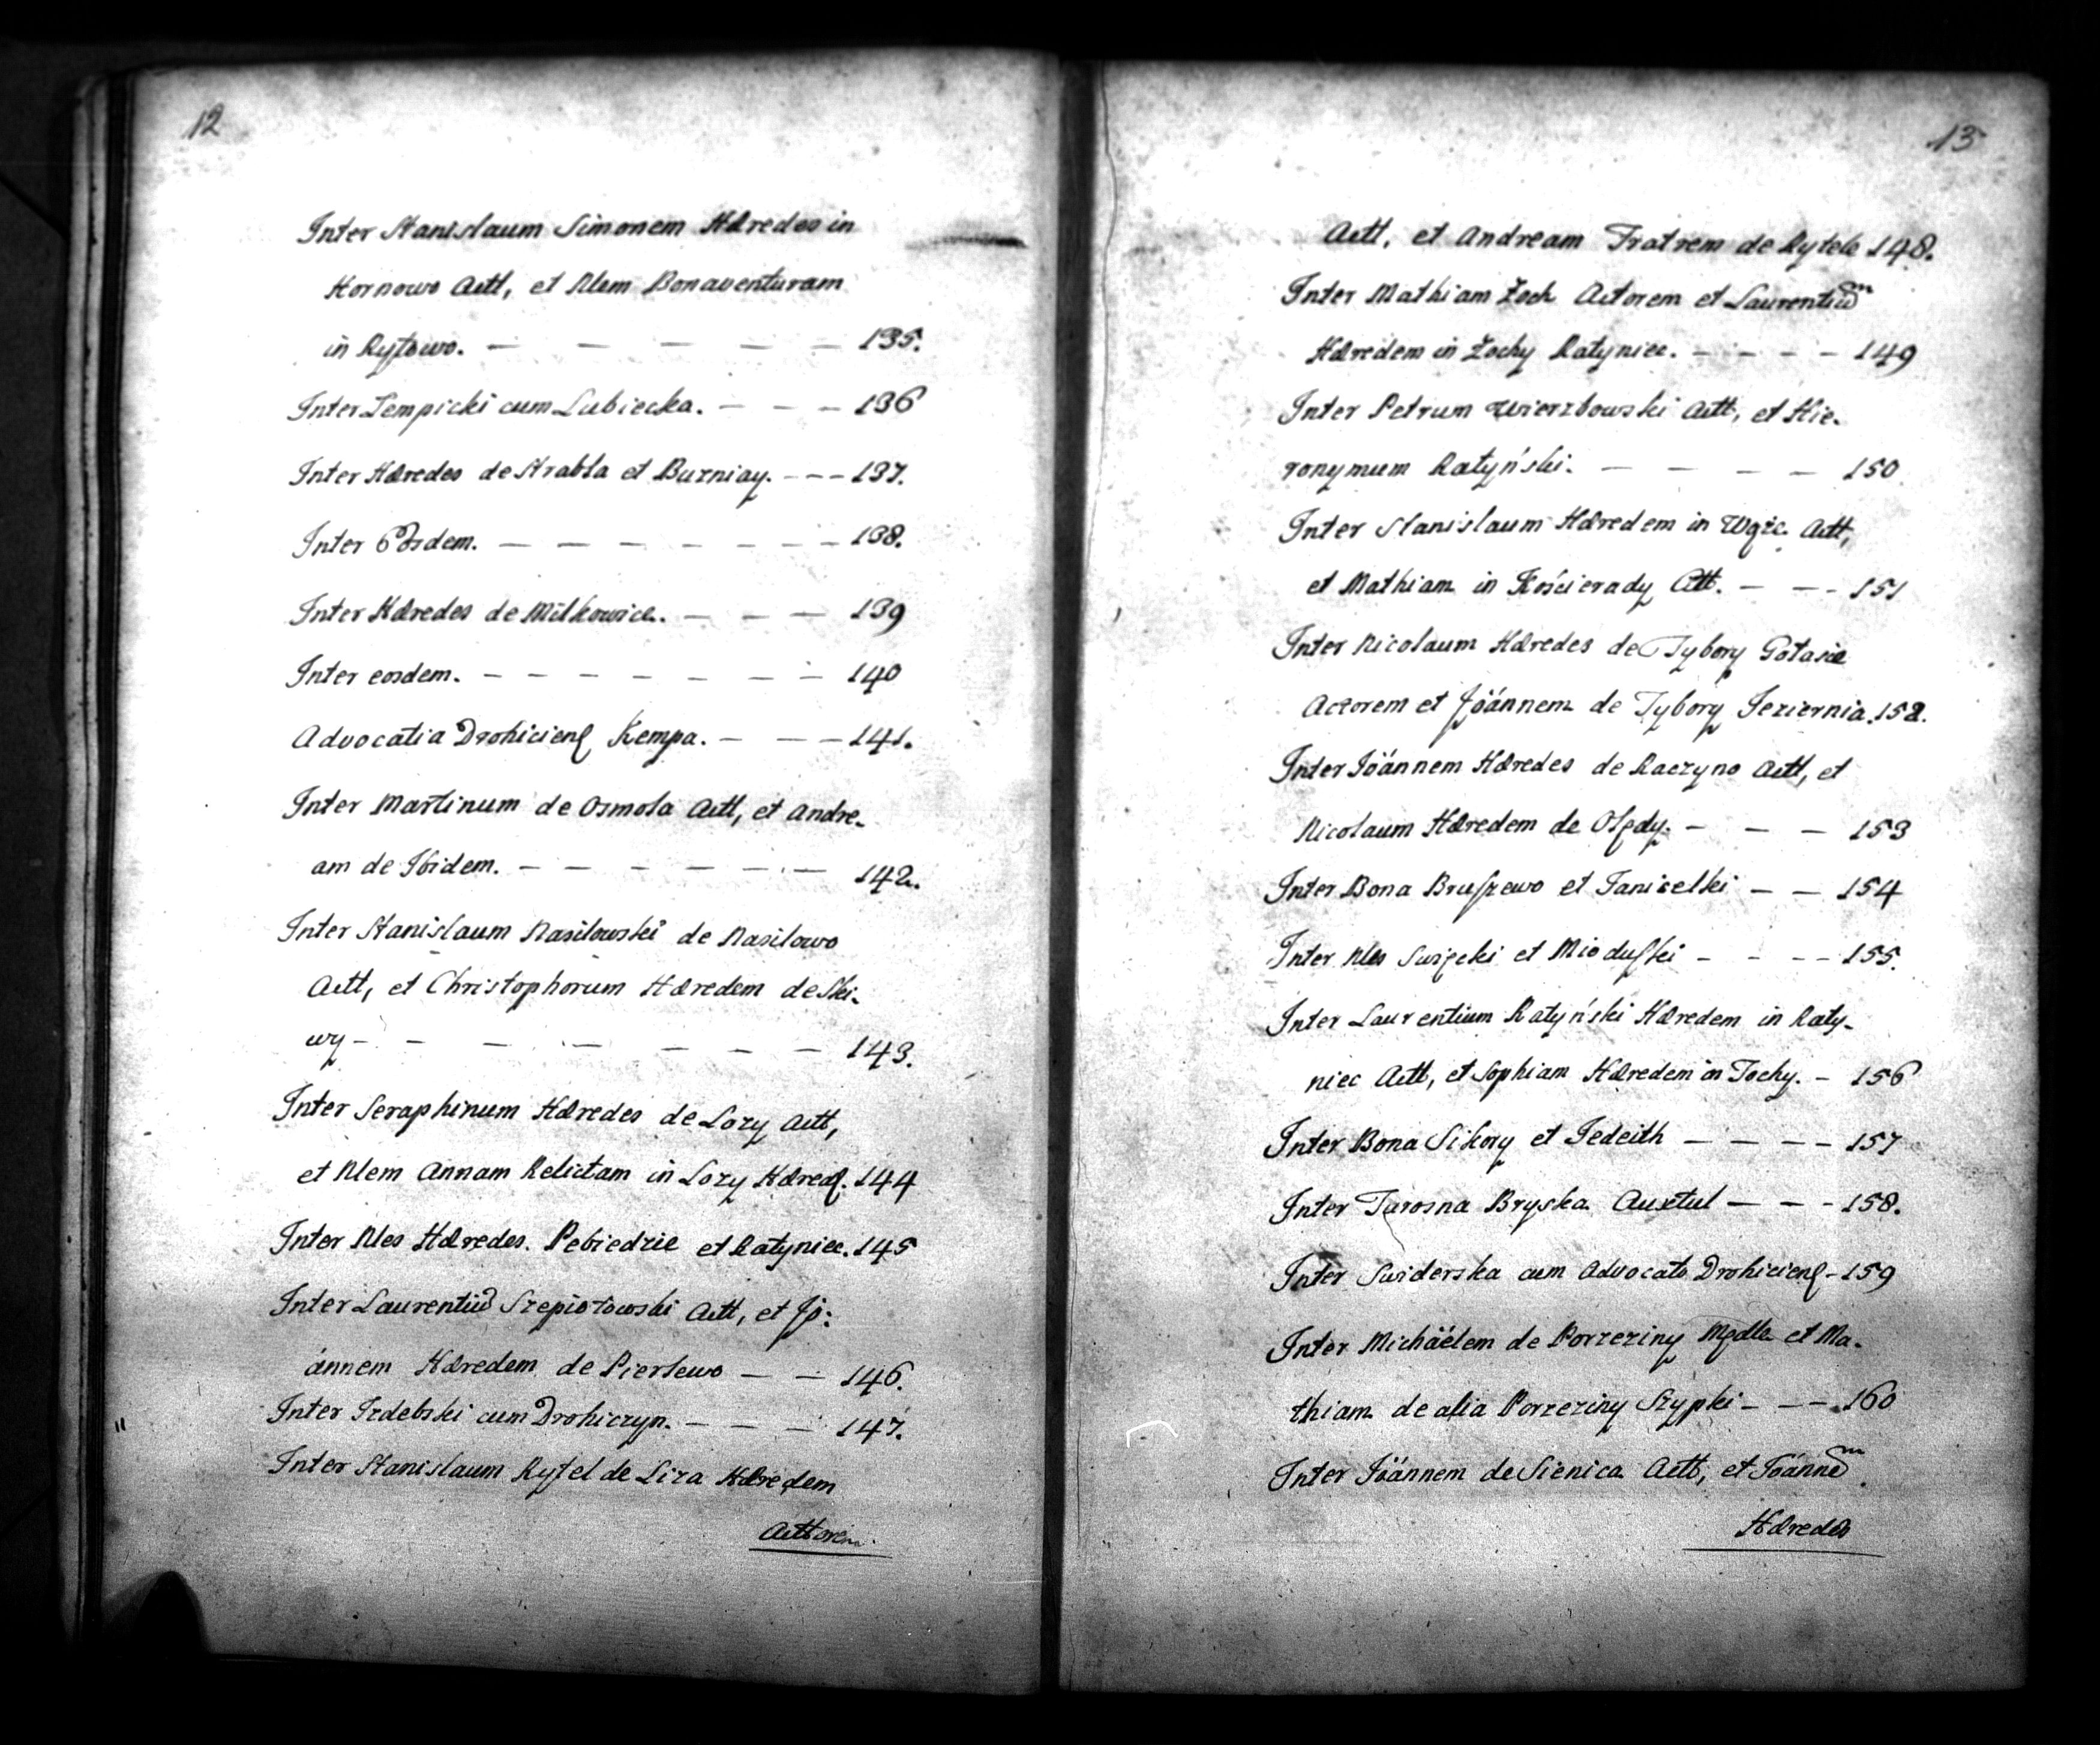 12
Inter Stanislaum Simonem Hæredes in
Kornowo Actt, et Nlem Bonaventuram
in Ryſtowo. — — — — — — 135.
Inter Łempicki cum Lubiecka. — — — 136
Inter Hæredes de Strabla et Burniay. – – – 137.
Inter Eosdem. — — — — — — — 138.
Inter Hæredes de Milkowice. — — — 139
Inter eosdem. — — — — — — — 140
Advocatia Drohicienſ Kempa. — — — 141.
Inter Martinum de Osmola Actt, et Andre-
am de Ibidem. — — — — — — 142.
Inter Stanislaum Nasilowski de Nasilowo
Actt, et Christophorum Hæredem de Ski-
wy — — — — — — — 143.
Inter Seraphinum Hæredes de Lozy Actt,
et Nlem Annam Relictam in Lozy Hæredſ. 144
Inter Nles Hæredes. Pobiedzie et Ratyniec. 145
Inter Laurentiũ Szepiotowski Actt, et Jo:
ánnem Hæredem de Piersewo — — 146.
Inter Izdebski cum Drohiczyn. — — — 147.
Inter Stanislaum Rytel de Liza Hæredem
Acttorem.
13
Actt, et Andream Fratrem de Rytele 148.
Inter Mathiam Żoch Actorem et Laurentiũm
Hæredem in Żochy Ratyniec. — — — — 149
Inter Petrum Wierzbowski Actt, et Hie-
ronymum Ratyński. — — — — 150
Inter Stanislaum Hæredem in Wąże. Actt,
et Mathiam in Kościerady Actt. — — – 151
Inter Nicolaum Hæredes de Tybory Gotasie
Actorem et Joánnem de Tybory Jeziernia. 152.
Inter Joánnem Hæredes de Raczyno Actt, et
Nicolaum Hæredem de Olędy. — — — 153
Inter Bona Bruſzewo et Tanicelki — — 154
Inter Nles Swięcki et Mioduſki – – – – 155.
Inter Laurentium Ratyński Hæredem in Raty-
niec Actt, et Sophiam Hæredem in Tochy. — 156
Inter Bona Sikory et Jedeith — — — — 157
Inter Turosna Bryska Auxtul — — – 158.
Inter Swiderska cum Advocato Drohicienſ – 159
Inter Michäélem de Porzeziny Mędle et Ma-
thiam de alia Porzeziny Szypki — — — 160
Inter Joánnem de Sienica Actt, et Joánnẽm
Hæredes